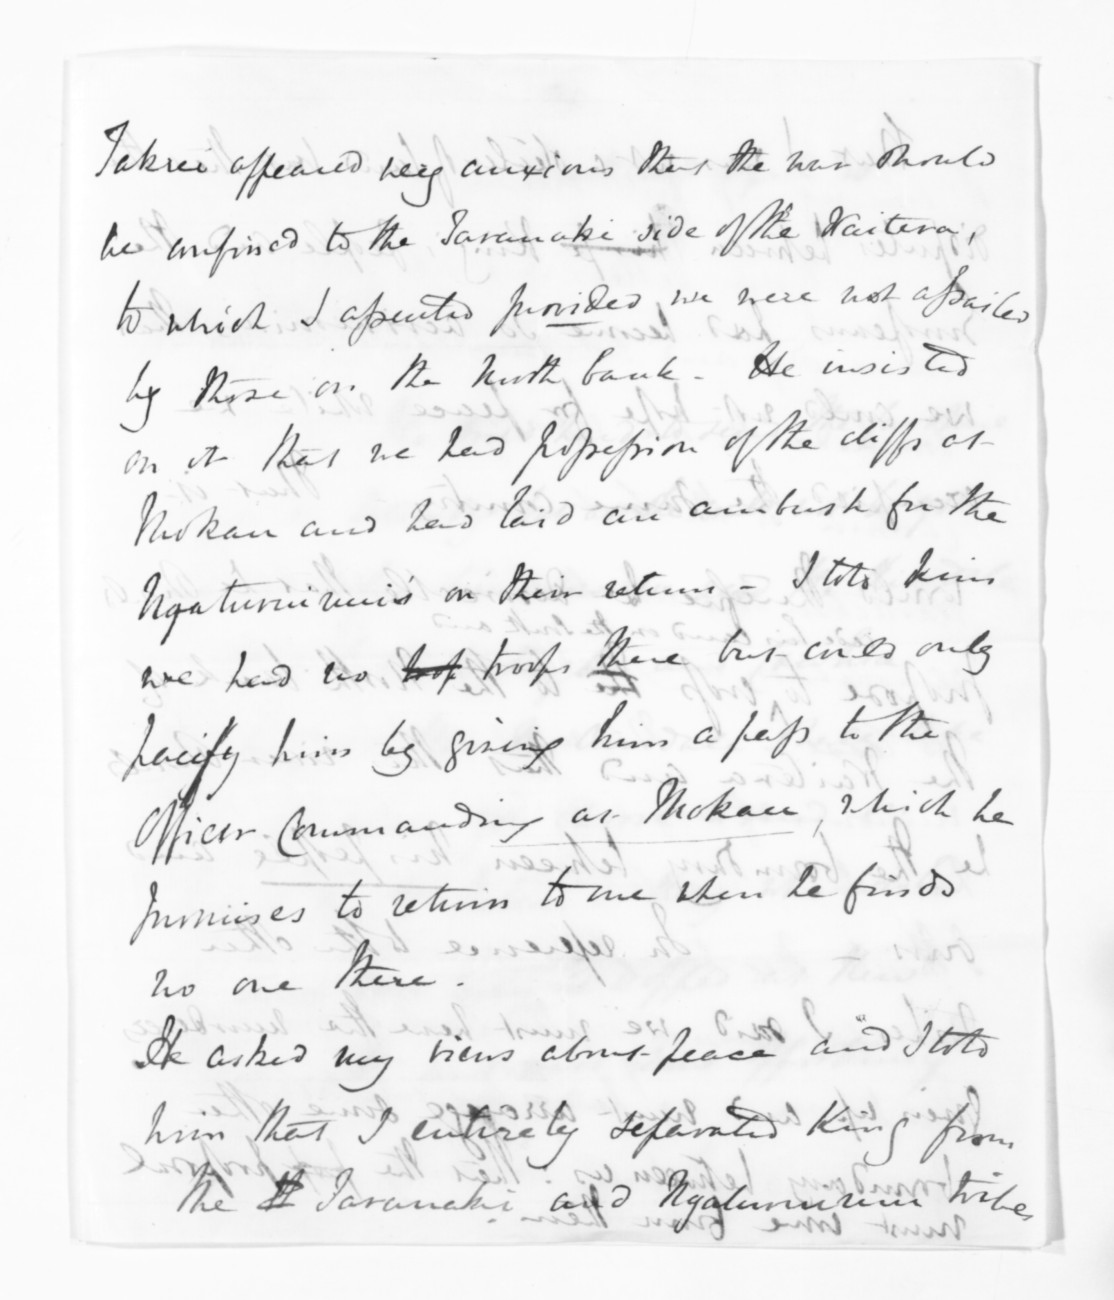 Takrei appeared very anxious that the war should
be confined to the Taranaki side of the Waitera,
to which I assented provided we were not assailed
by those on the North bank - He insisted
on it that we had possession of the cliffs at
Mokau and had laid an ambush for the
Ngatururunui's on their return - I told him
we had no troops there but could only
pacify him by giving him a pass to the
Officer Commanding at Mokau, which he
promises to return to me when he finds
no one there.
He asked my views about peace and I told
him that I entirely separated King from
the Taranaki and Ngaturuinui tribes